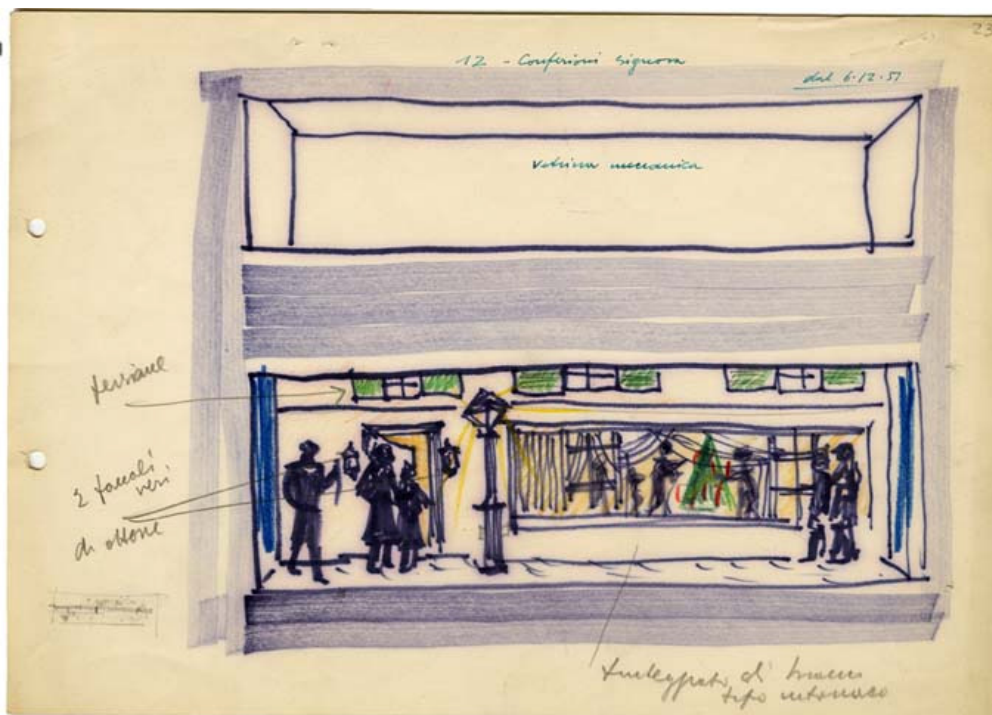 23
12 - Confezioni Signora
dal 6·12·57
Vetrina meccanica
persiane
2 fanali
veri
di ottone
di bianco
tipo intonaco